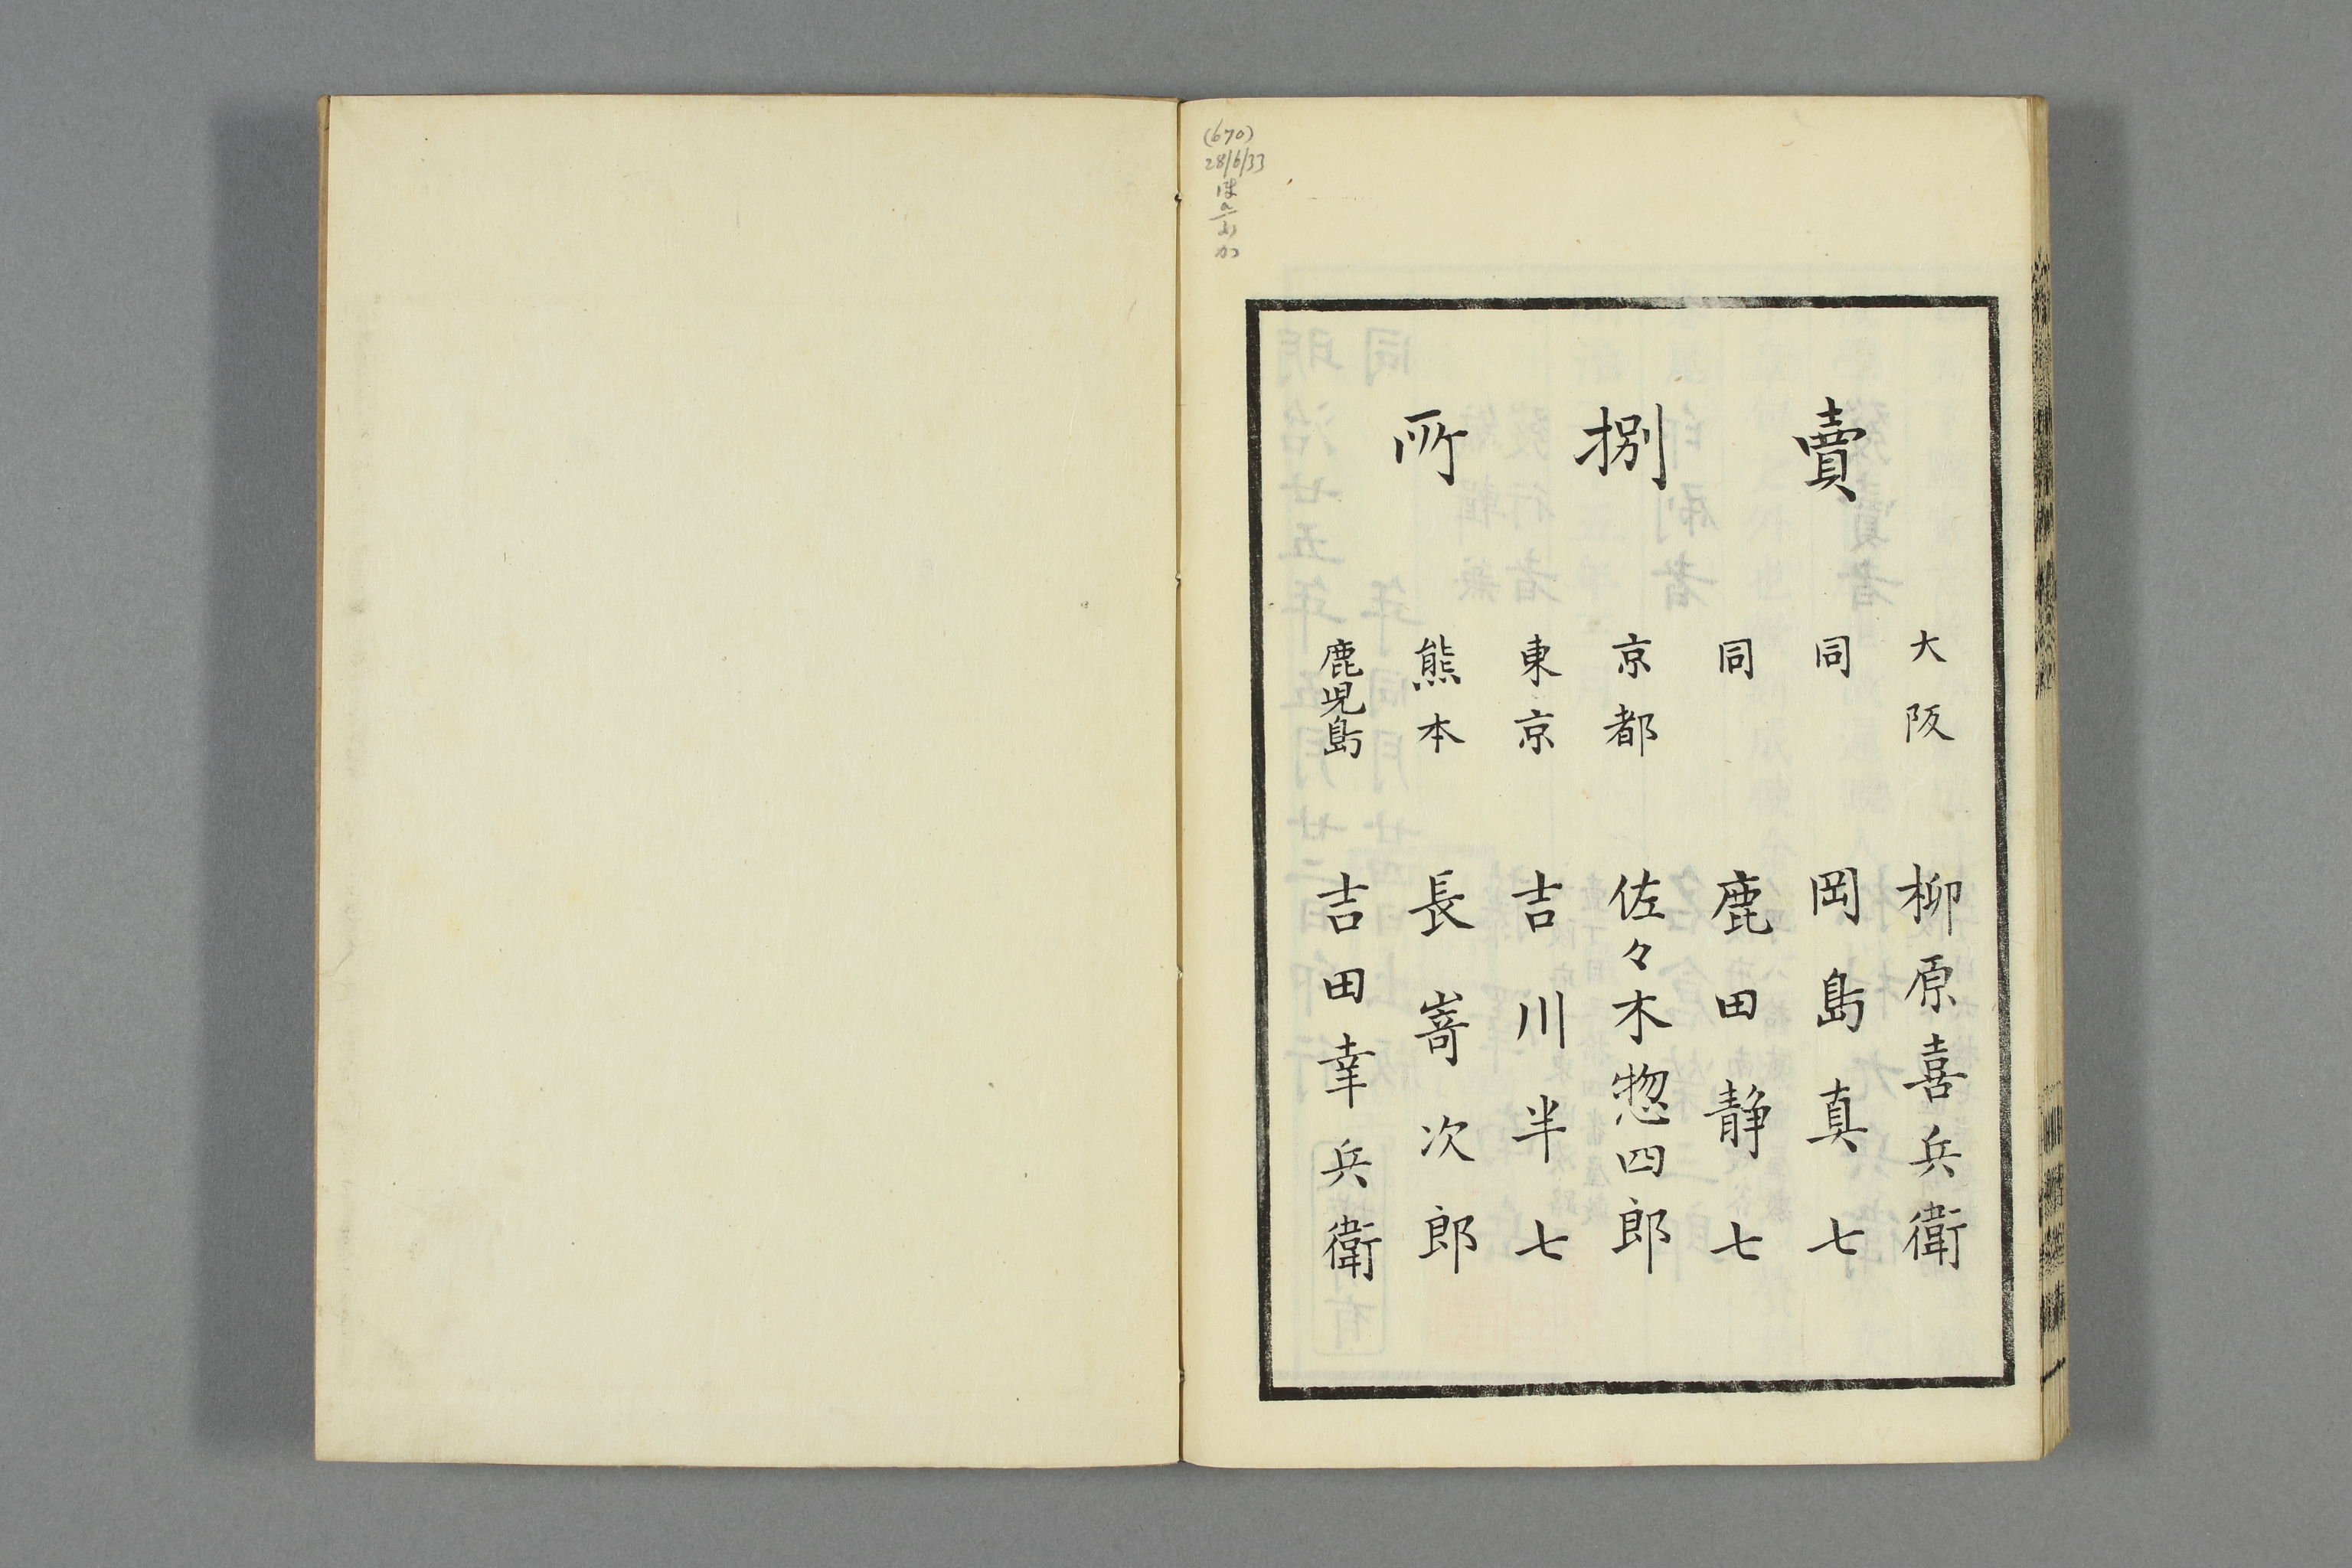 賣捌所
大阪 柳原喜兵衛
同 岡島真七
同 鹿田静七
京都 佐々木惣四郎
東京 吉川半七
熊本 長嵜次郎
鹿児島 吉田幸兵衛
(670)
28/6/33